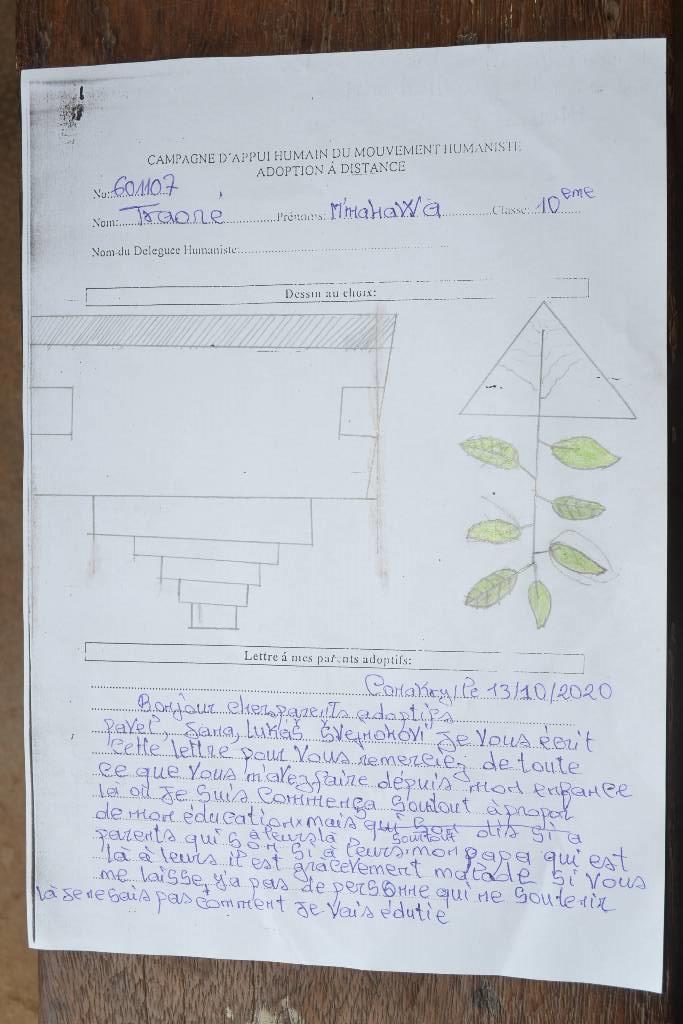 CAMPAGNE D'APPUI HUMAIN DU MOUVEMENT HUMANISTE
ADOPTION Á DISTANCE
No: 601107
Nom: Traoré Prénoms: M'mahaWa Classe: 10 eme
Nom du Deleguee Humaniste:
Dessin au choix:
Lettre á mes parents adoptifs:
Conakry, le 13/10/2020
Bonjour chers parents adoptifs
pavel, Jana, Lukáš Švejnohovi Je Vous écrit
Cette lettre pour Vous remerciez de toute
ce que Vous m'avez faire dépuis mon enfance
là où Je Suis Commença Soutout àpropos
de mon éducation mais qui dis Si a
parents qui Soutout
Son Si à leurs mon papa qui est
là à leurs il est gracevement malade Si Vous
me laisse, y'a pas de personne qui me Soutenir
là Je ne Sais pas comment Je Vais édutie